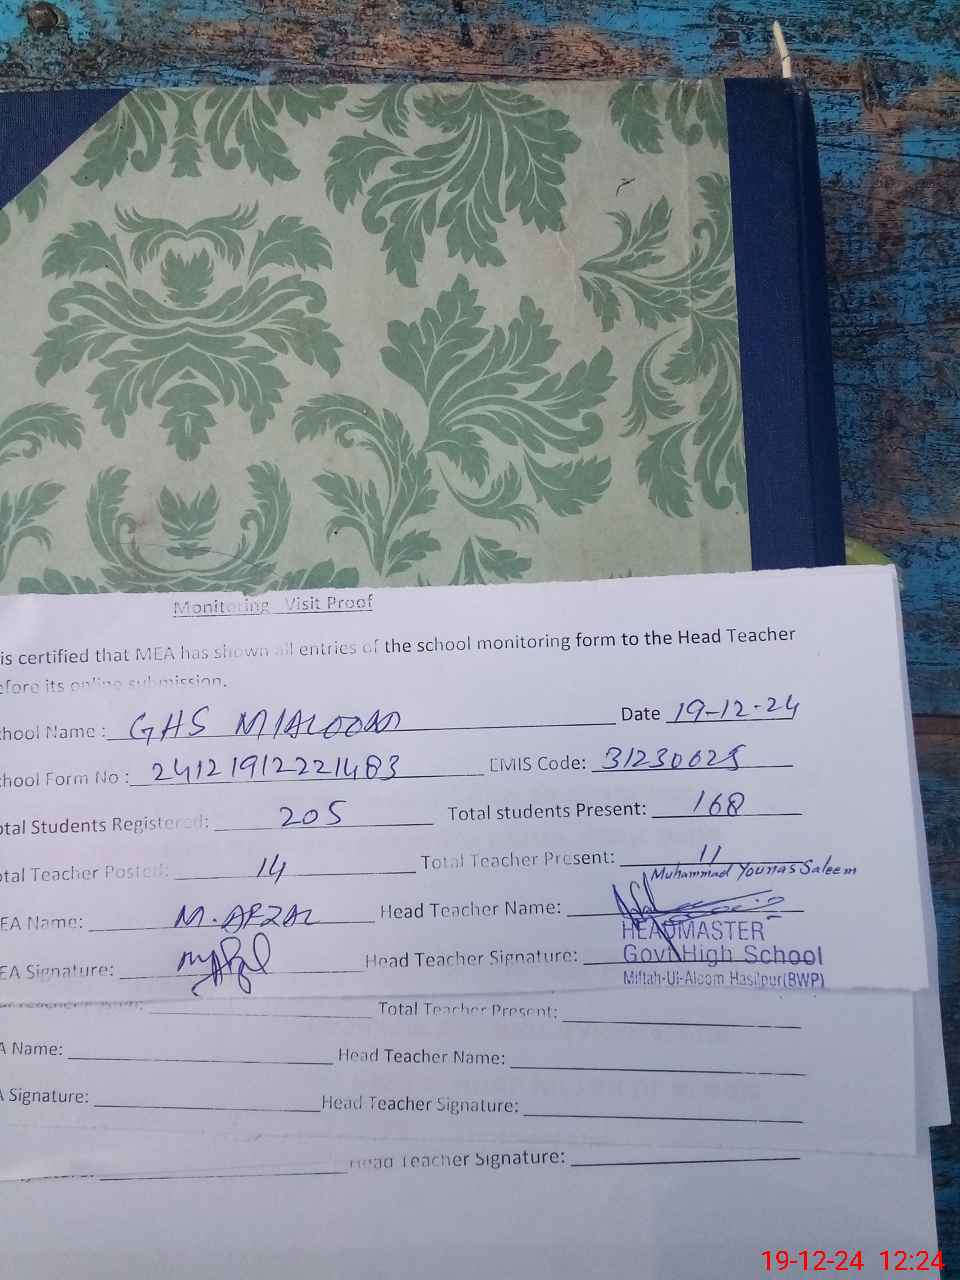 Monitoring Visit Proof
is certified that MEA has shown all entries of the school monitoring form to the Head Teacher
efore its online submission.
chool Name : GHS Date 19-12-24
chool Form No : 24121912221483 EMIS Code: 31230625
otal Students Registered: 205 Total students Present: 168
otal Teacher Posted: 14 Total Teacher Present: 11
Muhammad Younas Saleem
EA Name: M. AFZAL Head Teacher Name:
HEADMASTER
EA Signature: Head Teacher Signature: Govt High School
Miftah-Ul-Aloom Hasilpur(BWP)
Total Teacher Present:
A Name: Head Teacher Name:
A Signature: Head Teacher Signature:
Head Teacher Signature:
19-12-24 12:24